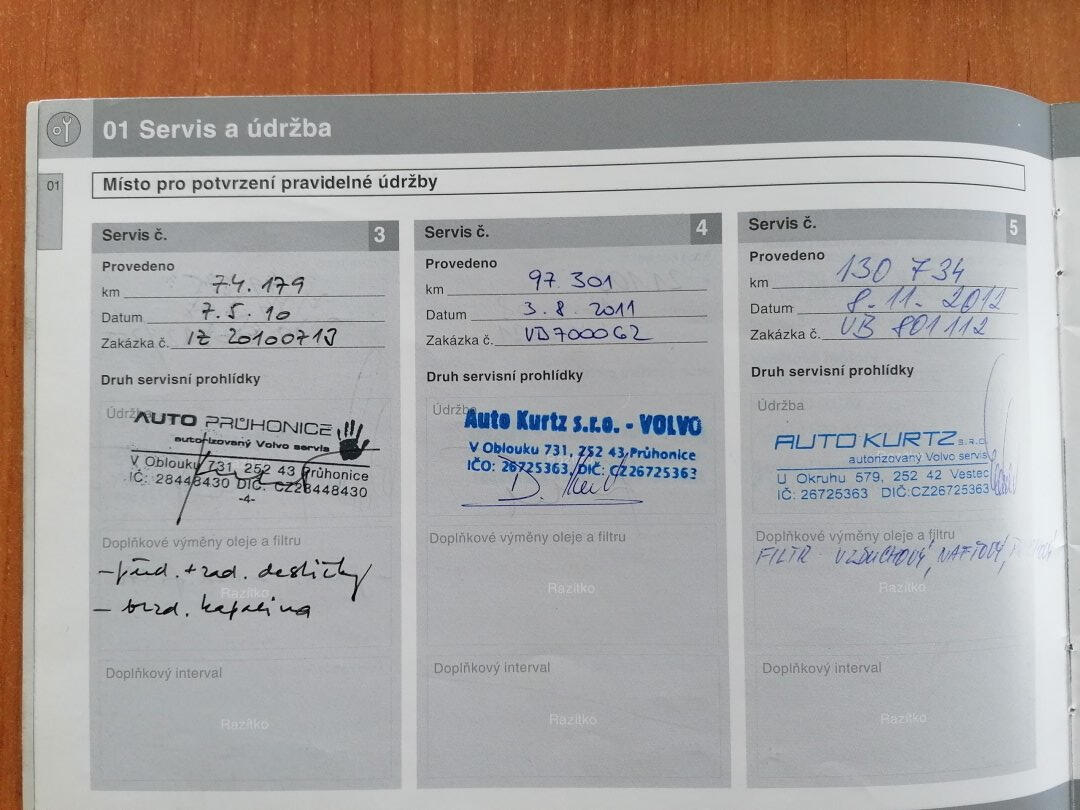 01 Servis a údržba
01
Místo pro potvrzení pravidelné údržby
Servis č. 3
Provedeno
km 74.179
Datum 7.5.10
Zakázka č.
Druh servisní prohlídky
Údržba
AUTO PRŮHONICE
autorizovaný Volvo servis
V Oblouku 731, 252 43 Průhonice
IČ: 28448430 DIČ: CZ28448430
-4-
Doplňkové výměny oleje a filtru
- před. + zad. destičky
Razítko
- brzd. kapalina
Doplňkový interval
Razítko
Servis č. 4
Provedeno
km 97 301
Datum 3.8.2011
Zakázka č. VD700062
Druh servisní prohlídky
Údržba
Auto Kurtz s.r.o. - VOLVO
V Oblouku 731, 252 43 Průhonice
IČO: 26725363, DIČ: CZ26725363
Doplňkové výměny oleje a filtru
Razítko
Doplňkový interval
Razítko
Servis č. 5
Provedeno
km 130 734
Datum 8.11.2012
Zakázka č. VB 801112
Druh servisní prohlídky
Údržba
AUTO KURTZ s.r.o.
autorizovaný Volvo servis
U Okruhu 579, 252 42 Vestec
IČ: 26725363 DIČ:CZ26725363
Doplňkové výměny oleje a filtru
FILTR VZDUCHOVÝ, NAFTOVÝ,
Razítko
Doplňkový interval
Razítko